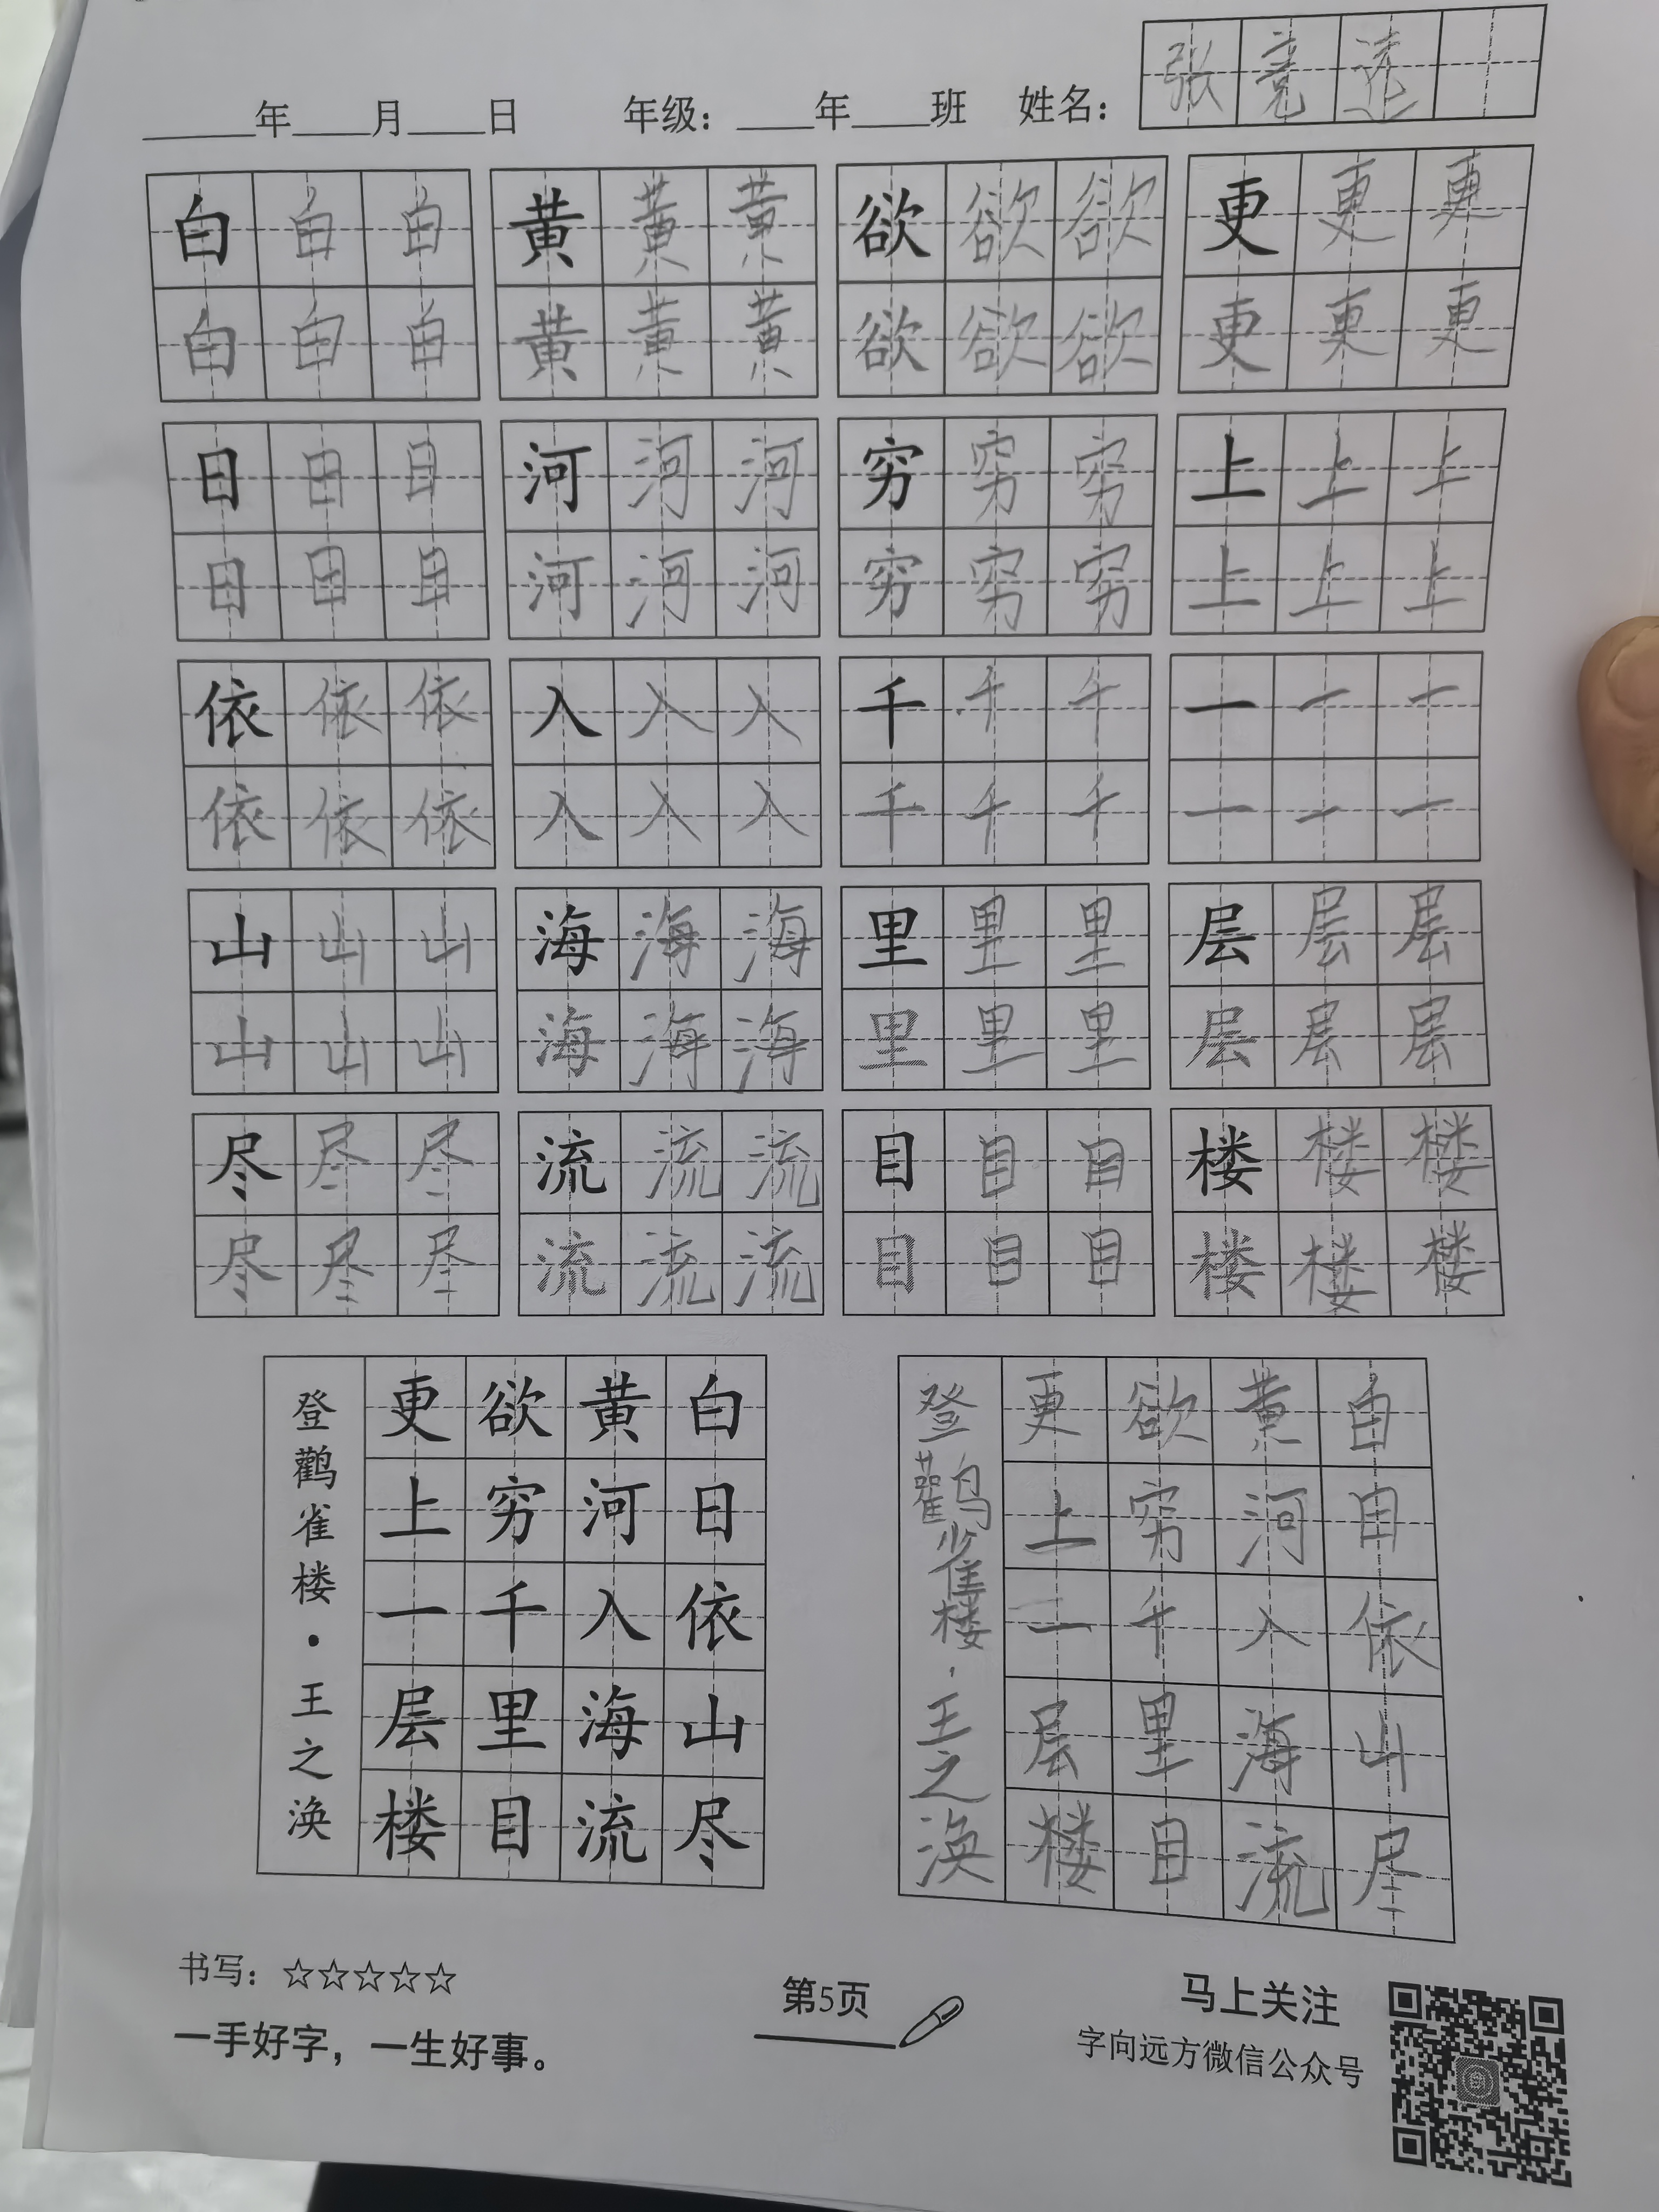 张竞远
____年____月____日 年级：____年____班 姓名：
白白白 黄黄黄 欲欲欲 更更更
白白白 黄黄黄 欲欲欲 更更更
日日日 河河河 穷穷穷 上上上
日日日 河河河 穷穷穷 上上上
依依依 入入入 千千千 一一一
依依依 入入入 千千千 一一一
山山山 海海海 里里里 层层层
山山山 海海海 里里里 层层层
尽尽尽 流流流 目目目 楼楼楼
尽尽尽 流流流 目目目 楼楼楼
白日依山尽
黄河入海流
欲穷千里目
更上一层楼
登鹳雀楼·王之涣
白日依山尽
黄河入海流
欲穷千里目
更上一层楼
登鹳雀楼·王之涣
书写：☆☆☆☆☆
一手好字，一生好事。
第5页
马上关注
字向远方微信公众号